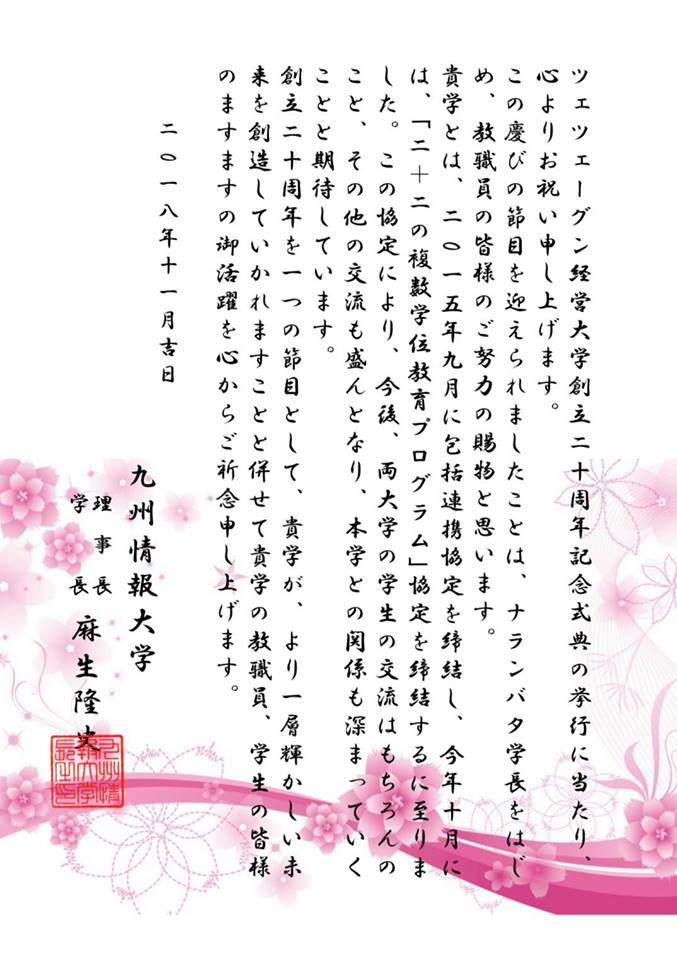 ツェツェーグン経営大学創立二十周年記念式典の挙行に当たり、
心よりお祝い申し上げます。
この慶びの節目を迎えられましたことは、ナランバタ学長をはじ
め、教職員の皆様のご努力の賜物と思います。
貴学とは、二〇一五年九月に包括連携協定を締結し、今年十月に
は、「二＋二の複数学位教育プログラム」協定を締結するに至りま
した。この協定により、今後、両大学の学生の交流はもちろんの
こと、その他の交流も盛んとなり、本学との関係も深まっていく
ことと期待しています。
創立二十周年を一つの節目として、貴学が、より一層輝かしい未
来を創造していかれますことと併せて貴学の教職員、学生の皆様
のますますの御活躍を心からご祈念申し上げます。
二〇一八年十一月吉日
九州情報大学
理事長
学長
麻生隆史